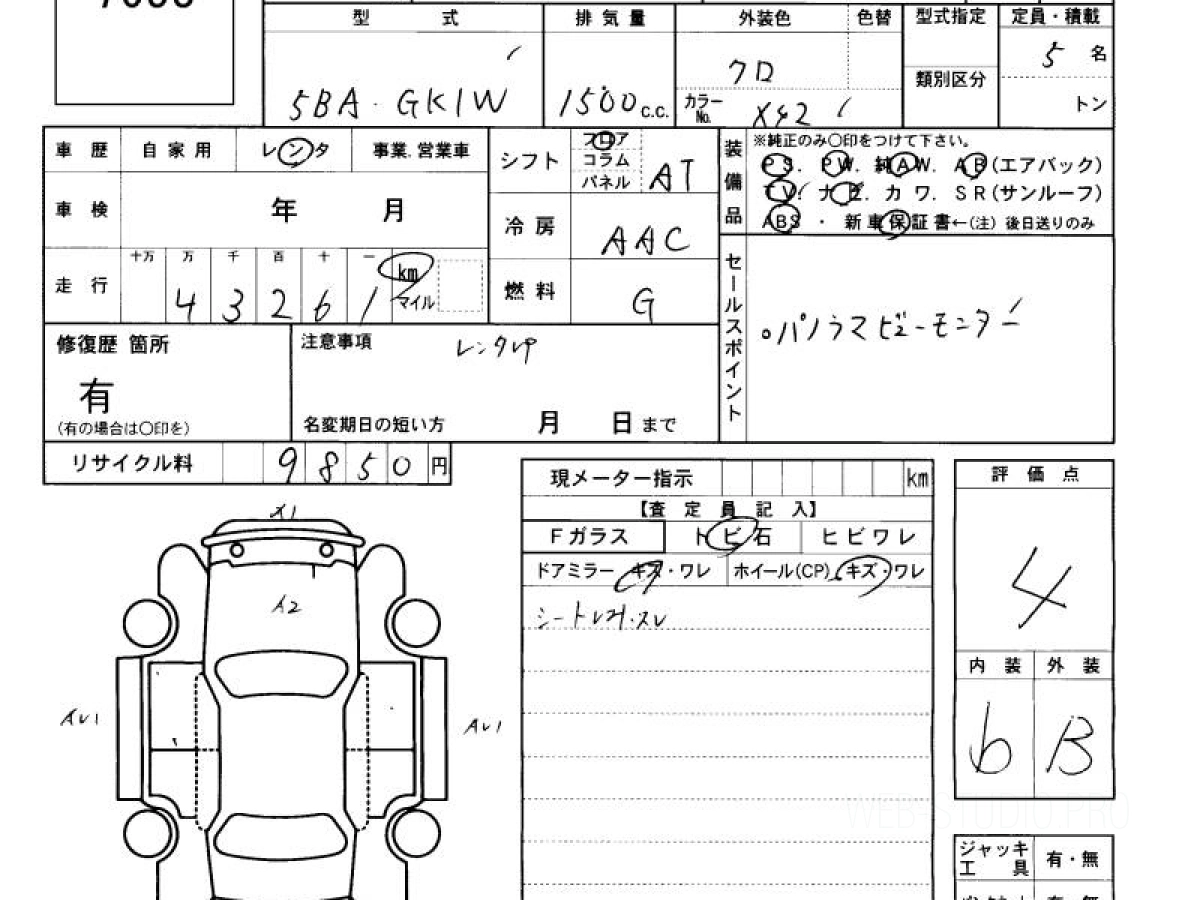 型 式 排 気 量 外装色 色替 型式指定 定員・積載
5BA-GK1W 1500 c.c. クロ カラーNo. X42 類別区分 5 名
トン
車 歴 自 家 用 レンタ 事業.営業車
シフト フロア コラム パネル AT
装備品 ※純正のみ○印をつけて下さい。
PS. PW. 純AW. AB(エアバック)
TV. ナビ. カワ. SR(サンルーフ)
ABS ・ 新車保証書←(注) 後日送りのみ
車 検 年 月
冷 房 AAC
走 行 十万 万 千 百 十 一 km
4 3 2 6 1 マイル
燃 料 G
セールスポイント
○パノラマビューモニター
修復歴 箇所
有
(有の場合は○印を)
注意事項 レンタUP
名変期日の短い方 月 日 まで
リサイクル料 9 8 5 0 円
現メーター指示 km
【査 定 員 記 入】
Fガラス トビ石 ヒビワレ
ドアミラー キズ・ワレ ホイール(CP) キズ・ワレ
シートヨゴレ・スレ
評 価 点
4
内 装 外 装
b B
A1
A2
AU1
AU1
ジャッキ
工 具 有・無
WEB-STUDIO.PRO